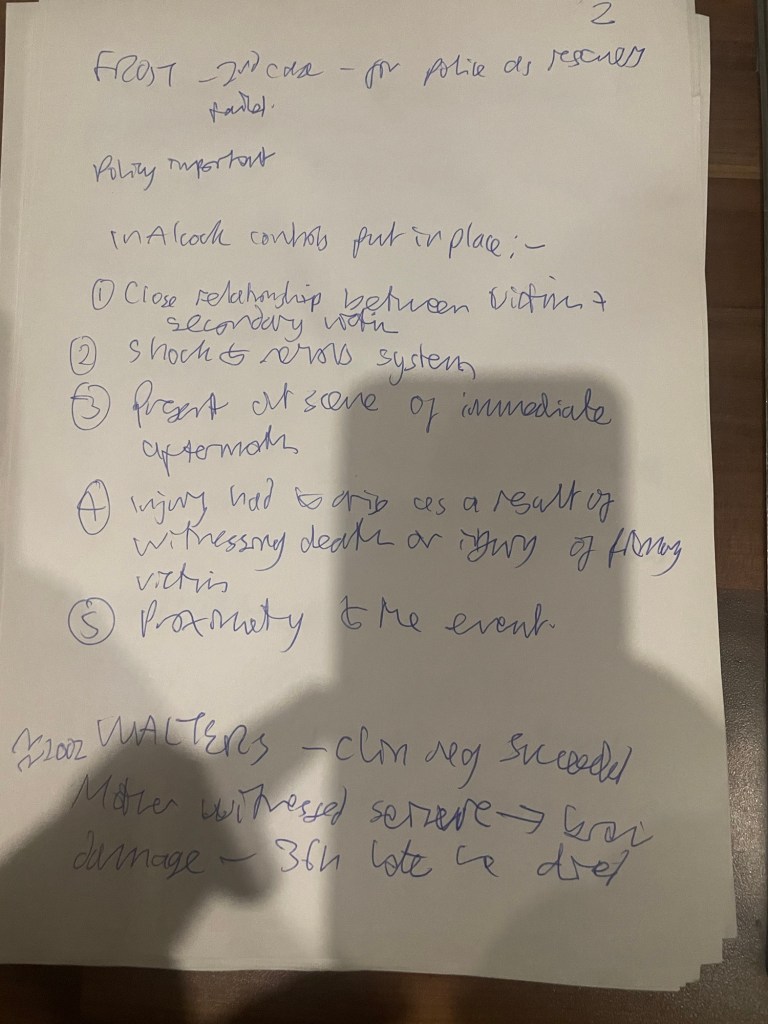 2
FROST - 2nd case - for police as rescuers
failed.
Policy important
in Alcock controls put in place:-
① Close relationship between victim +
secondary victim
② Shock to nervous system
③ Present at scene of immediate
aftermath
④ injury had to arise as a result of
witnessing death or injury of primary
victim
⑤ Proximity to the event.
2002 WALTERS - clin neg succeeded
Mother witnessed seizure → brain
damage - 36h late he died